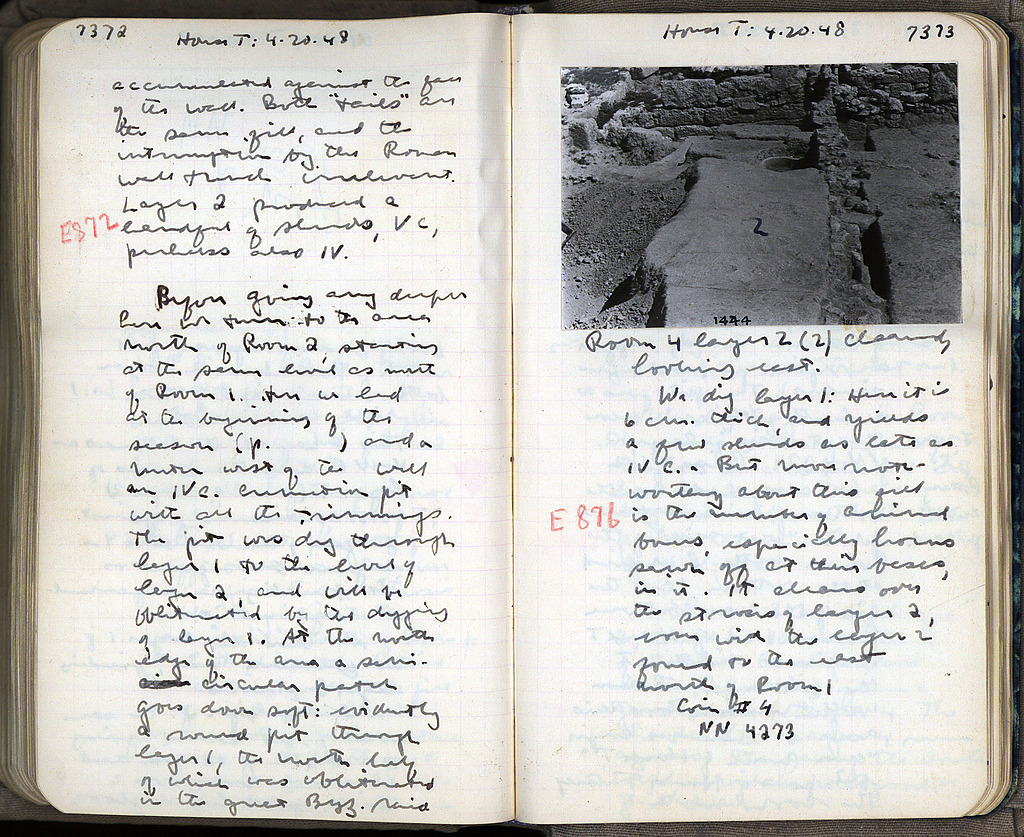 7372
House T: 4.20.48
accumulated against the face
of the wall. Both "tails" are
the same fill, and the
interruption by the Roman
wall trench irrelevant.
Layer 2 produced a
E872
handful of sherds, V c,
perhaps also IV.
Before going any deeper
here we turn to the area
north of Room 2, starting
at the same level as north
of Room 1. Here we had
at the beginning of the
season (p. ) and a
meter west of the well
an IV c. cremation pit
with all the trimmings.
The pit was dug through
layer 1 to the level of
layer 2, and will be
obliterated by the digging
of layer 1. At the north
edge of the area a semi-
circular patch
goes down soft: evidently
a round pit through
layer 1, the north half
of which was obliterated
in the great Byz. raid
House T: 4.20.48
7373
2
1444
Room 4 layer 2 (2) cleared,
looking east.
We dig layer 1: Here it is
6 cm. thick, and yields
a few sherds as late as
IV c. But more note-
worthy about this fill
E 876
is the number of animal
bones, especially horns
sawn off at their bases,
in it. It cleans over
the strosis of layer 2,
even with the layer 2
found to the east
north of Room 1
Coin # 4
NN 4273